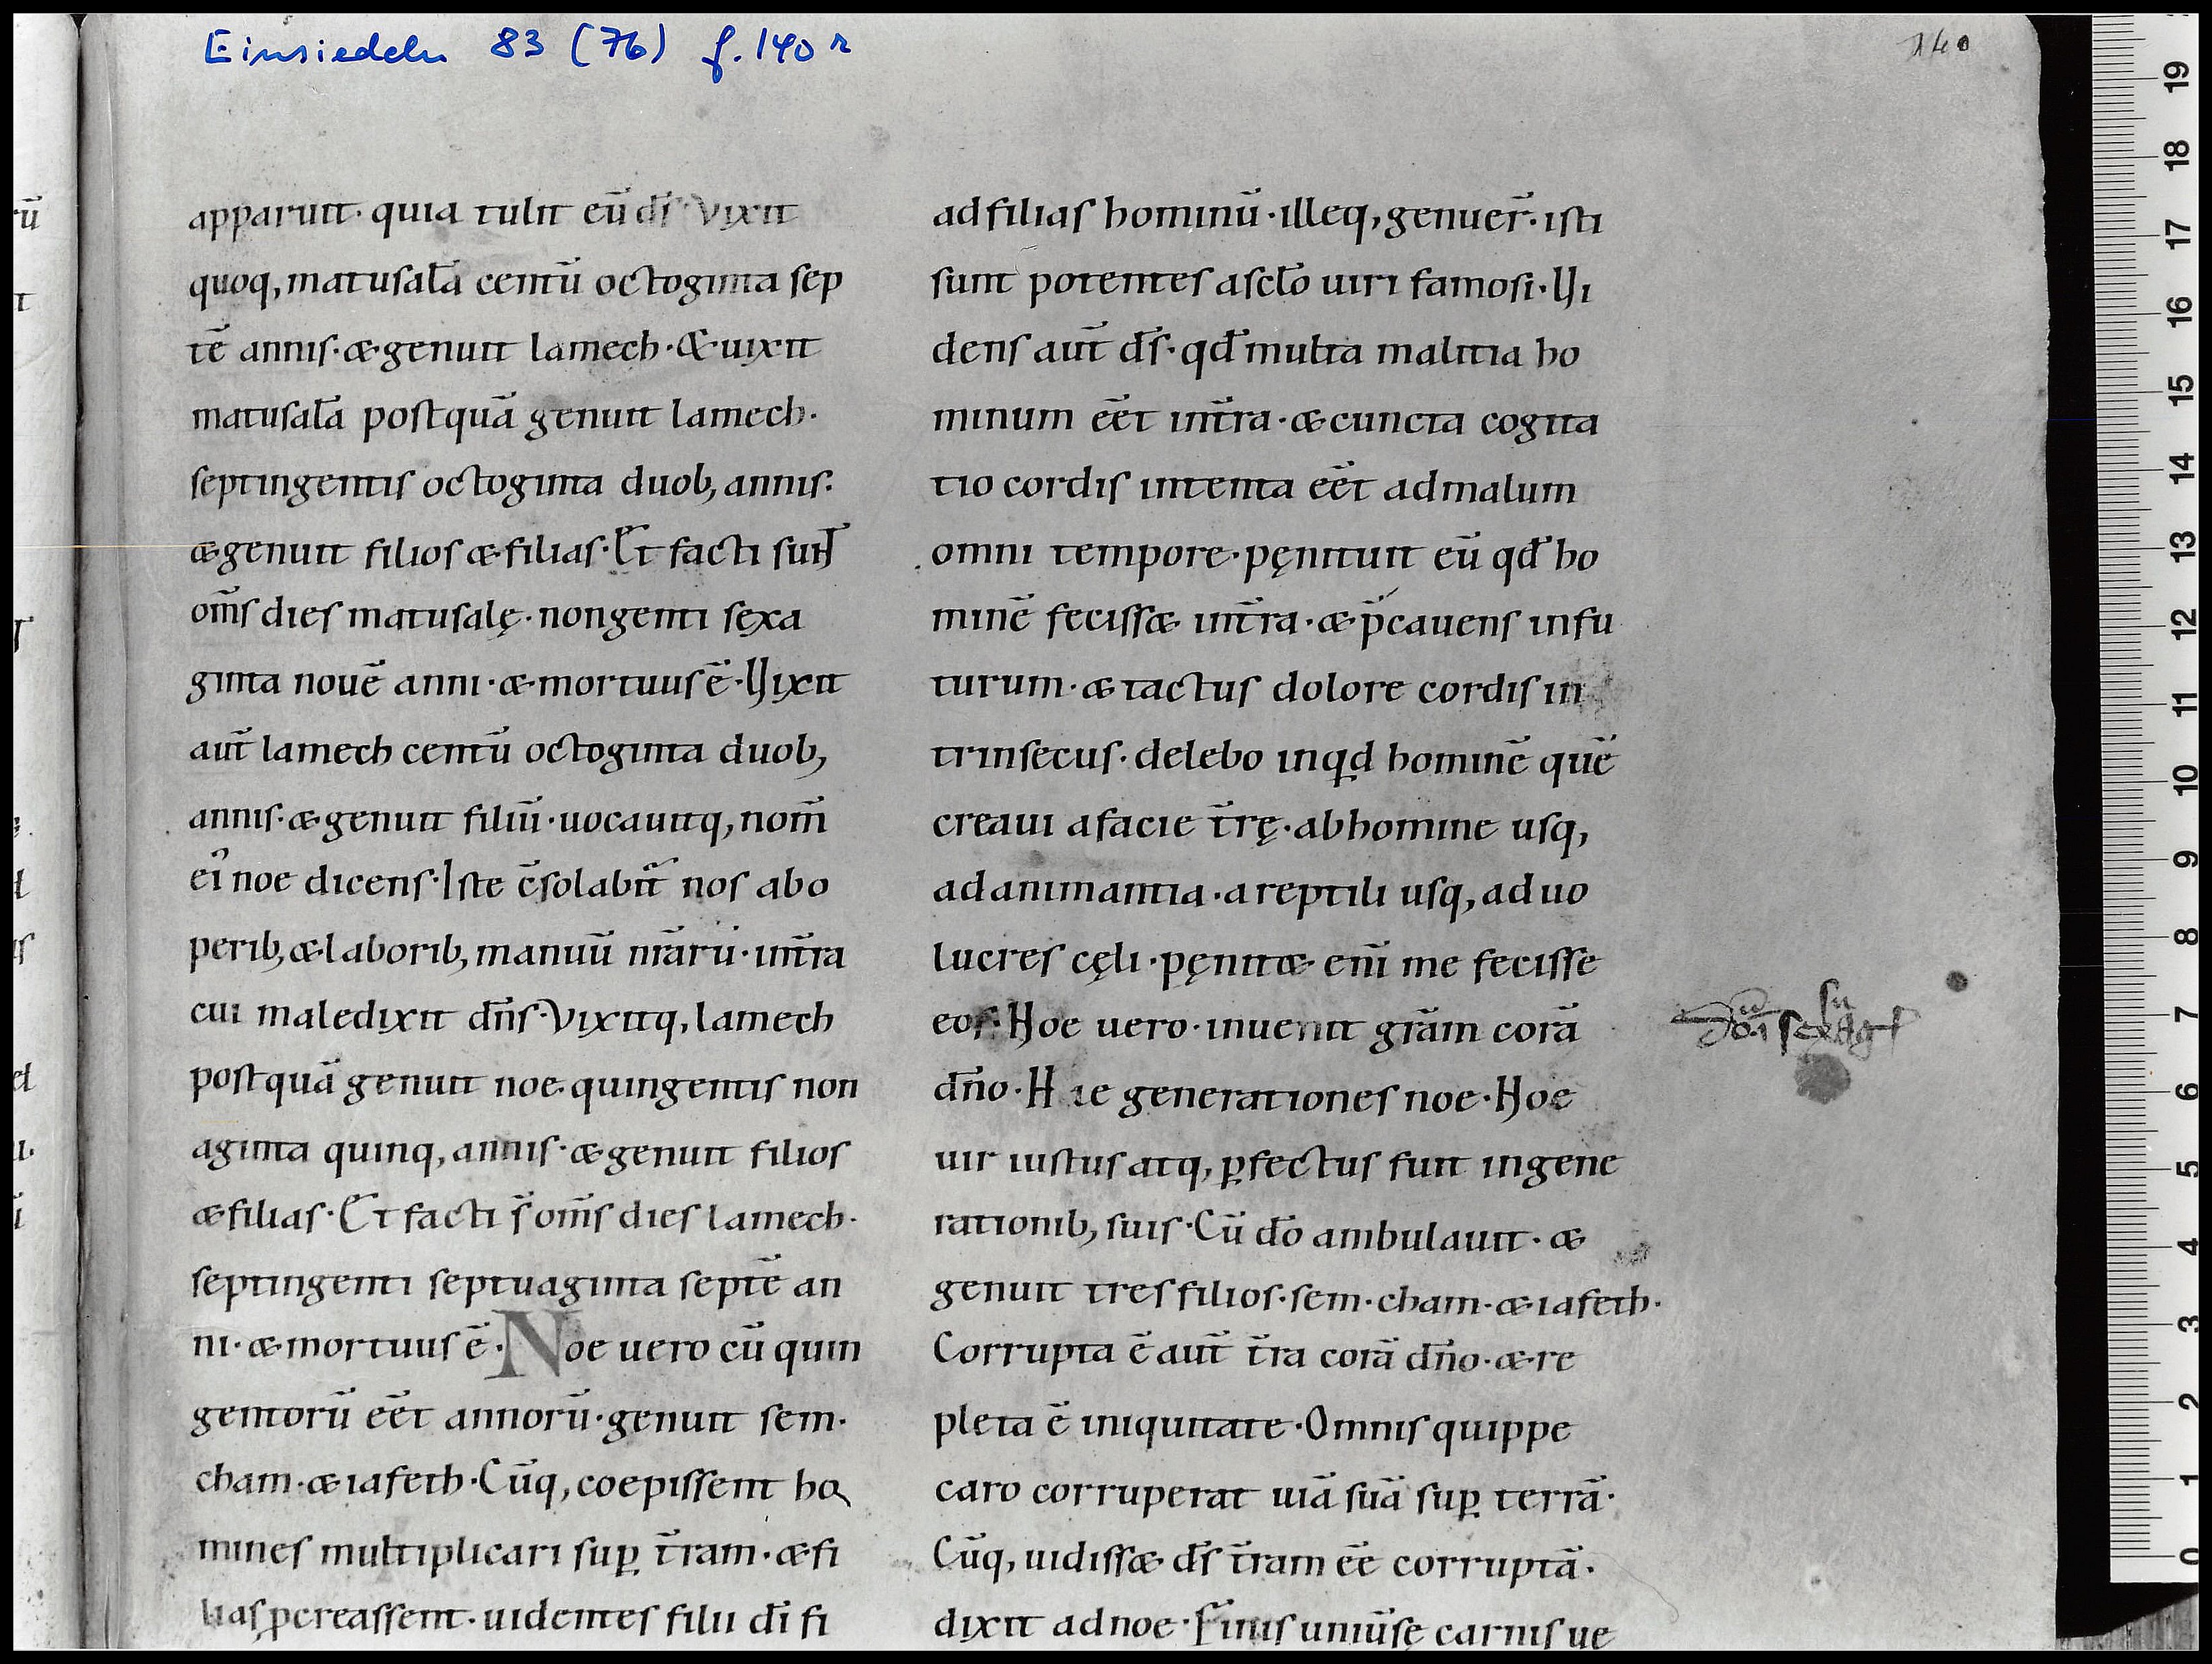 Einsiedeln 83 (76) f. 140 r
140
apparuit· quia tulit eū ds̄· Vixit
quoq, matusalā centū octoginta sep
tē annis· & genuit lamech· & uixit
matusalā postquā genuit lamech·
septingentis octoginta duob, annis·
& genuit filios & filias· Et facti sunt
om̄s dies matusalę· nongenti sexa
ginta nouē anni· & mortuus ē· Vixit
aut̄ lamech centū octoginta duob,
annis· & genuit filiū· uocauitq, nom̄
ei᾽ noe dicens· Iste c̄solabit᷑ nos abo
perib, & laborib, manuū nr̄arū· int̄ra
cui maledixit dn̄s· Vixitq, lamech
postquā genuit noe· quingentis non
aginta quinq, annis· & genuit filios
& filias· Et facti s̄ om̄s dies lamech·
septingenti septuaginta septē an
ni· & mortuus ē· Noe uero cū quin
gentorū eēt annorū· genuit sem·
cham· & iafeth· Cūq, coepissent ho
mines multiplicari sup̱ t̄ram· & fi
lias p̱creassent· uidentes filii dī fi
ad filias hominū· illeq, genuer̄· isti
sunt potentes ascl̄o uiri famosi· Vi
dens aut̄ ds̄· qd̄ multa malitia ho
minum eēt int̄ra· & cuncta cogita
tio cordis intenta eēt admalum
omni tempore· pęnituit eū qd̄ ho
minē feciss& int̄ra· & p̄cauens infu
turum· & tactus dolore cordis in
trinsecus· delebo inqd hominē quē
creaui afacie t̄rę· abhomine usq,
adanimantia· areptili usq, aduo
lucres cęli· pęnit& enī me fecisse
eos· Noe uero· inuenit grām corā
dn̄o· H e generationes noe· Noe
uir iustus atq, ꝑfectus fuit ingene
rationib, suis· Cū dō ambulauit· &
genuit tres filios· sem· cham· & iafeth·
Corrupta ē aut̄ t̄ra corā dn̄o· & re
pleta ē iniquitate· Omnis quippe
caro corruperat uiā suā sup̱ terrā·
Cūq, uidiss& ds̄ t̄ram eē corruptā·
dixit adnoe· Finis uniūsę carnis ue
0 1 2 3 4 5 6 7 8 9 10 11 12 13 14 15 16 17 18 19